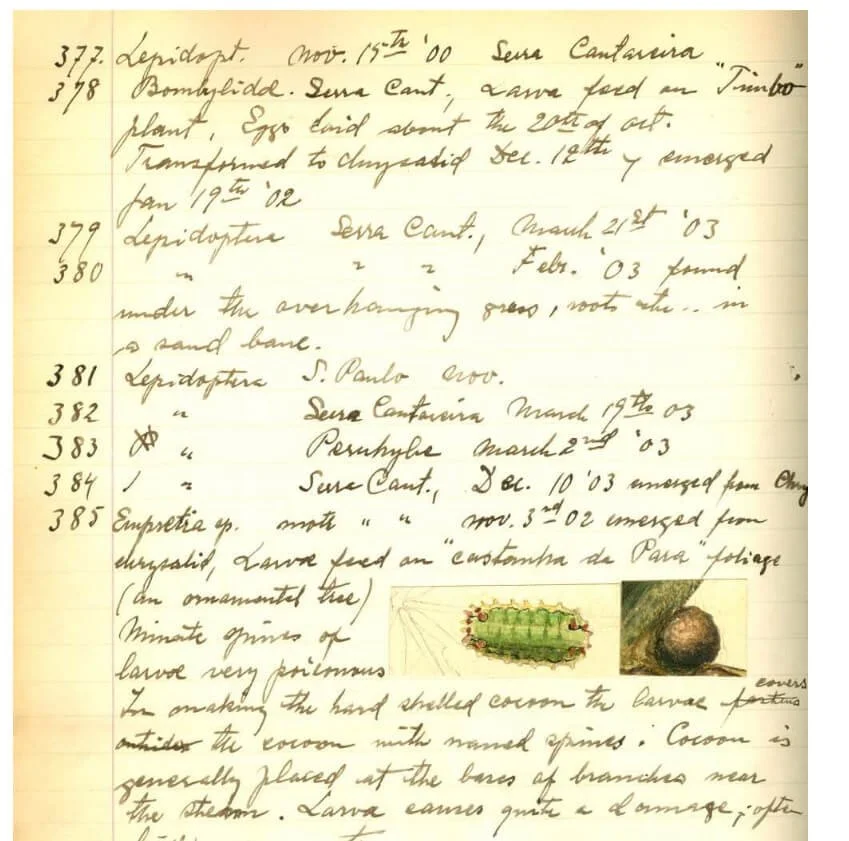 377. Lepidopt. Nov. 15th '00 Serra Cantareira
378 Bombylidd. Serra Cant., Larva feed on "Timbo"
plant, Eggs laid about the 20th of Oct.
Transformed to chrysalid Dec. 12th y emerged
Jan 19th '02
379 Lepidoptera Serra Cant., March 21st '03
380 " " " Febr. '03 found
under the overhanging grass, roots etc.. in
a sand bank.
381 Lepidoptera S. Paulo Nov.
382 " Serra Cantareira March 19th 03
383 " Peruhybe March 2nd '03
384 1 " Serra Cant., Dec. 10 '03 emerged from Chry
385 Empretia sp. moth " " Nov. 3rd 02 emerged from
chrysalid, Larvae feed on "castanha da Para" foliage
(an ornamental tree)
Minute spines of
larvae very poisonous
In making the hard shelled cocoon the larvae covers
the cocoon with spines. Cocoon is
generally placed at the bases of branches near
the steam. Larva causes quite a damage, often